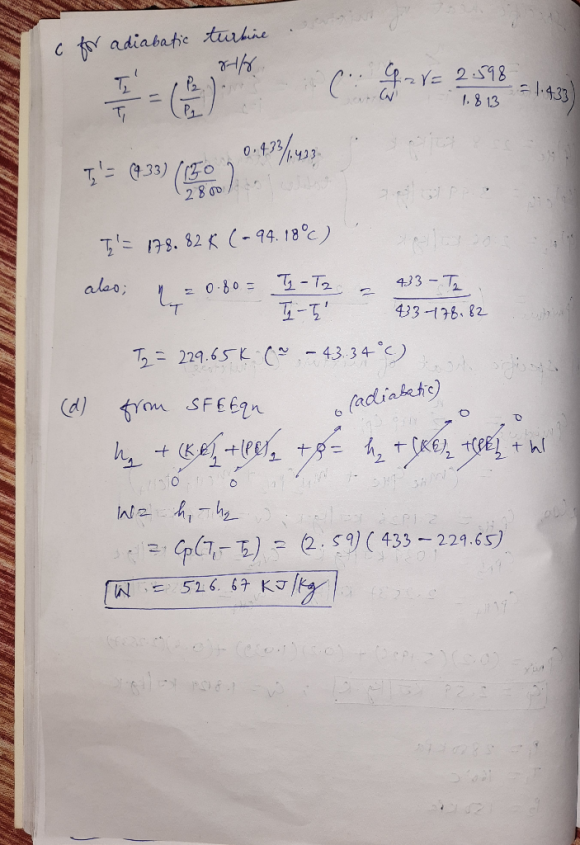 c for adiabatic turbine
T2'/T1 = (P2/P1)^γ-1/γ (∵ Cp/Cv = γ = 2.598/1.813 = 1.433)
T2' = (433) (150/2800)^0.433/1.433
T2' = 178.82 K (-94.18°C)
also; ηT = 0.80 = T1-T2/T1-T2' = 433-T2/433-178.82
T2 = 229.65 K (≃ -43.34°C)
(d) from SFEEqn (adiabatic)
h1 + (KE)1 + (PE)1 + Q = h2 + (KE)2 + (PE)2 + W
0 0 0 0 0
W = h1 - h2
= Cp(T1-T2) = (2.59) (433-229.65)
W = 526.67 KJ/kg